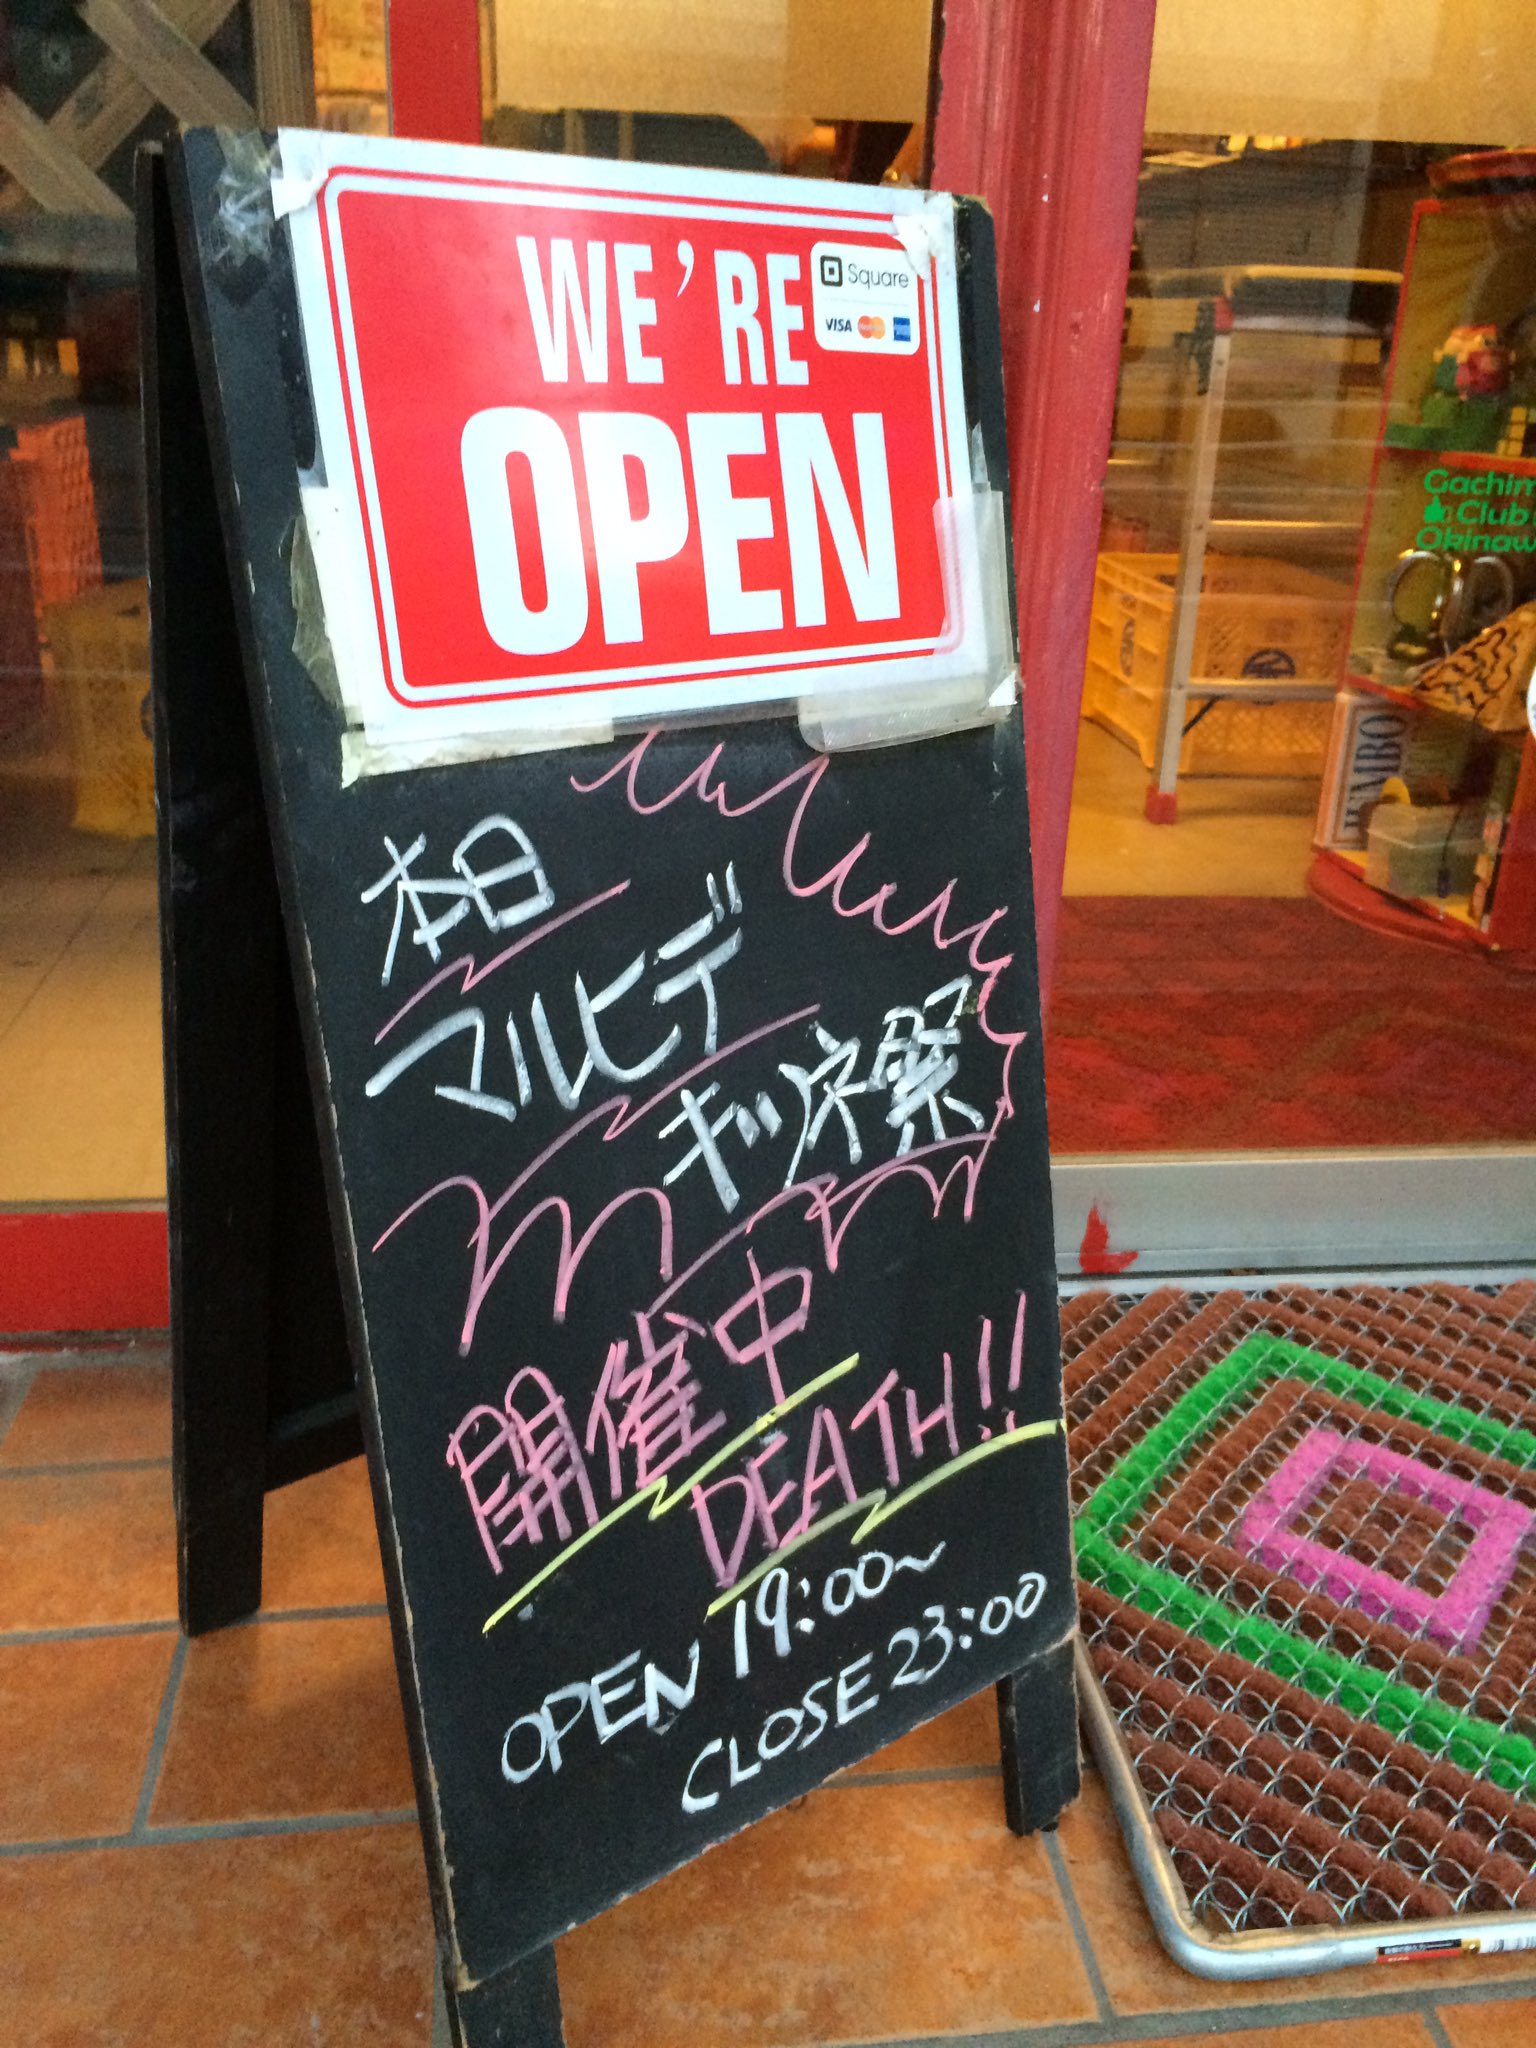 WE'RE
OPEN
Square
VISA
本日
マルヒデ
キツネ祭
開催中
DEATH!!
OPEN 19:00~
CLOSE 23:00
Gachim
Club
Okinaw
JUMBO